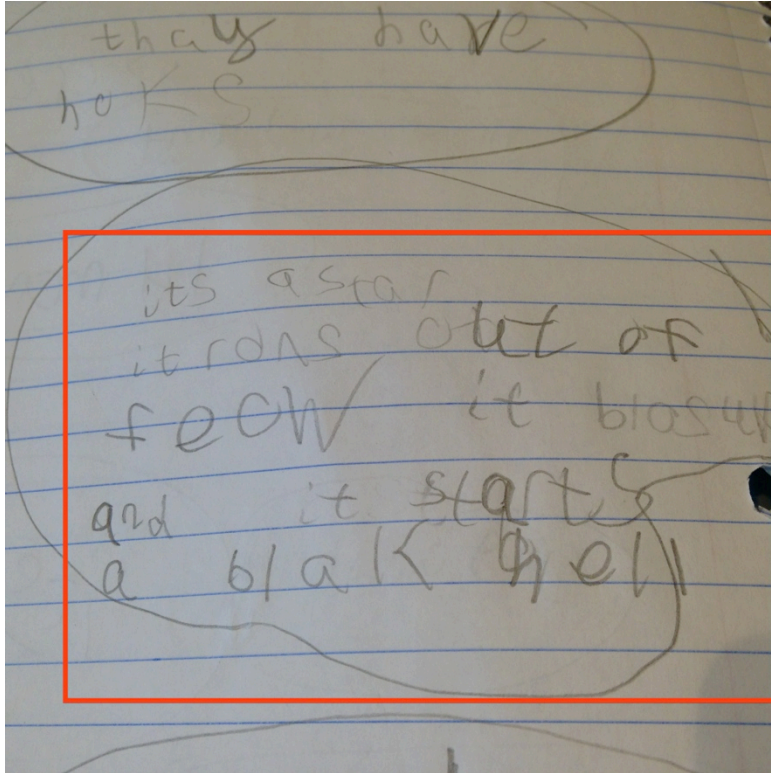 thay have
hoks
its a star
it rons out of
feow it blosup
and it starts
a blak hell